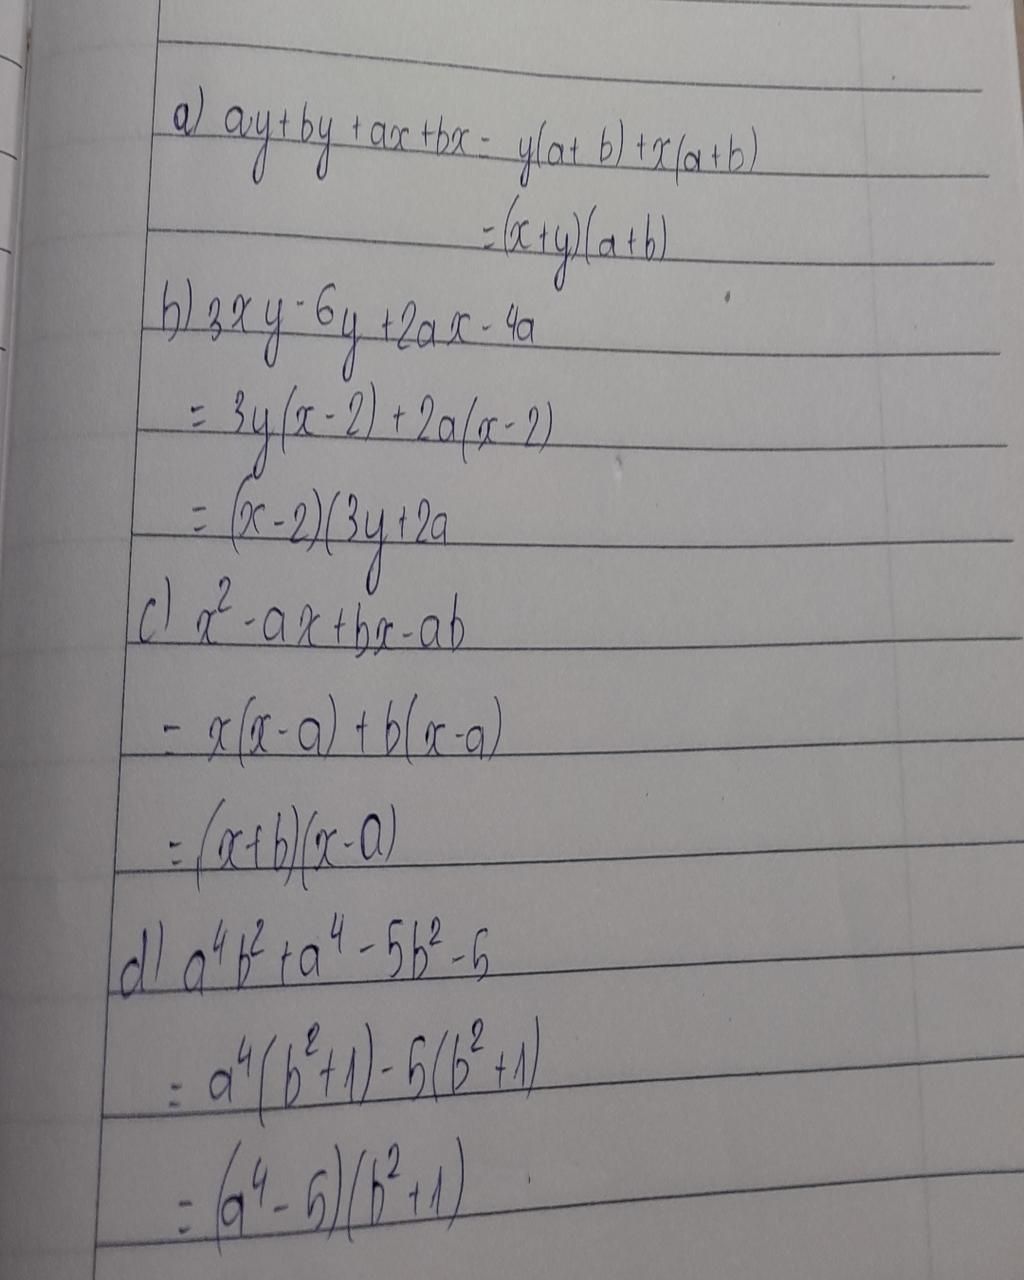 a) ay+by+ax+bx = y(a+b)+x(a+b)
=(x+y)(a+b)
b) 3xy-6y+2ax-4a
= 3y(x-2)+2a(x-2)
= (x-2)(3y+2a
c) x²-ax+bx-ab
= x(x-a)+b(x-a)
= (x+b)(x-a)
d) a⁴b²+a⁴-5b²-5
= a⁴(b²+1)-5(b²+1)
= (a⁴-5)(b²+1)